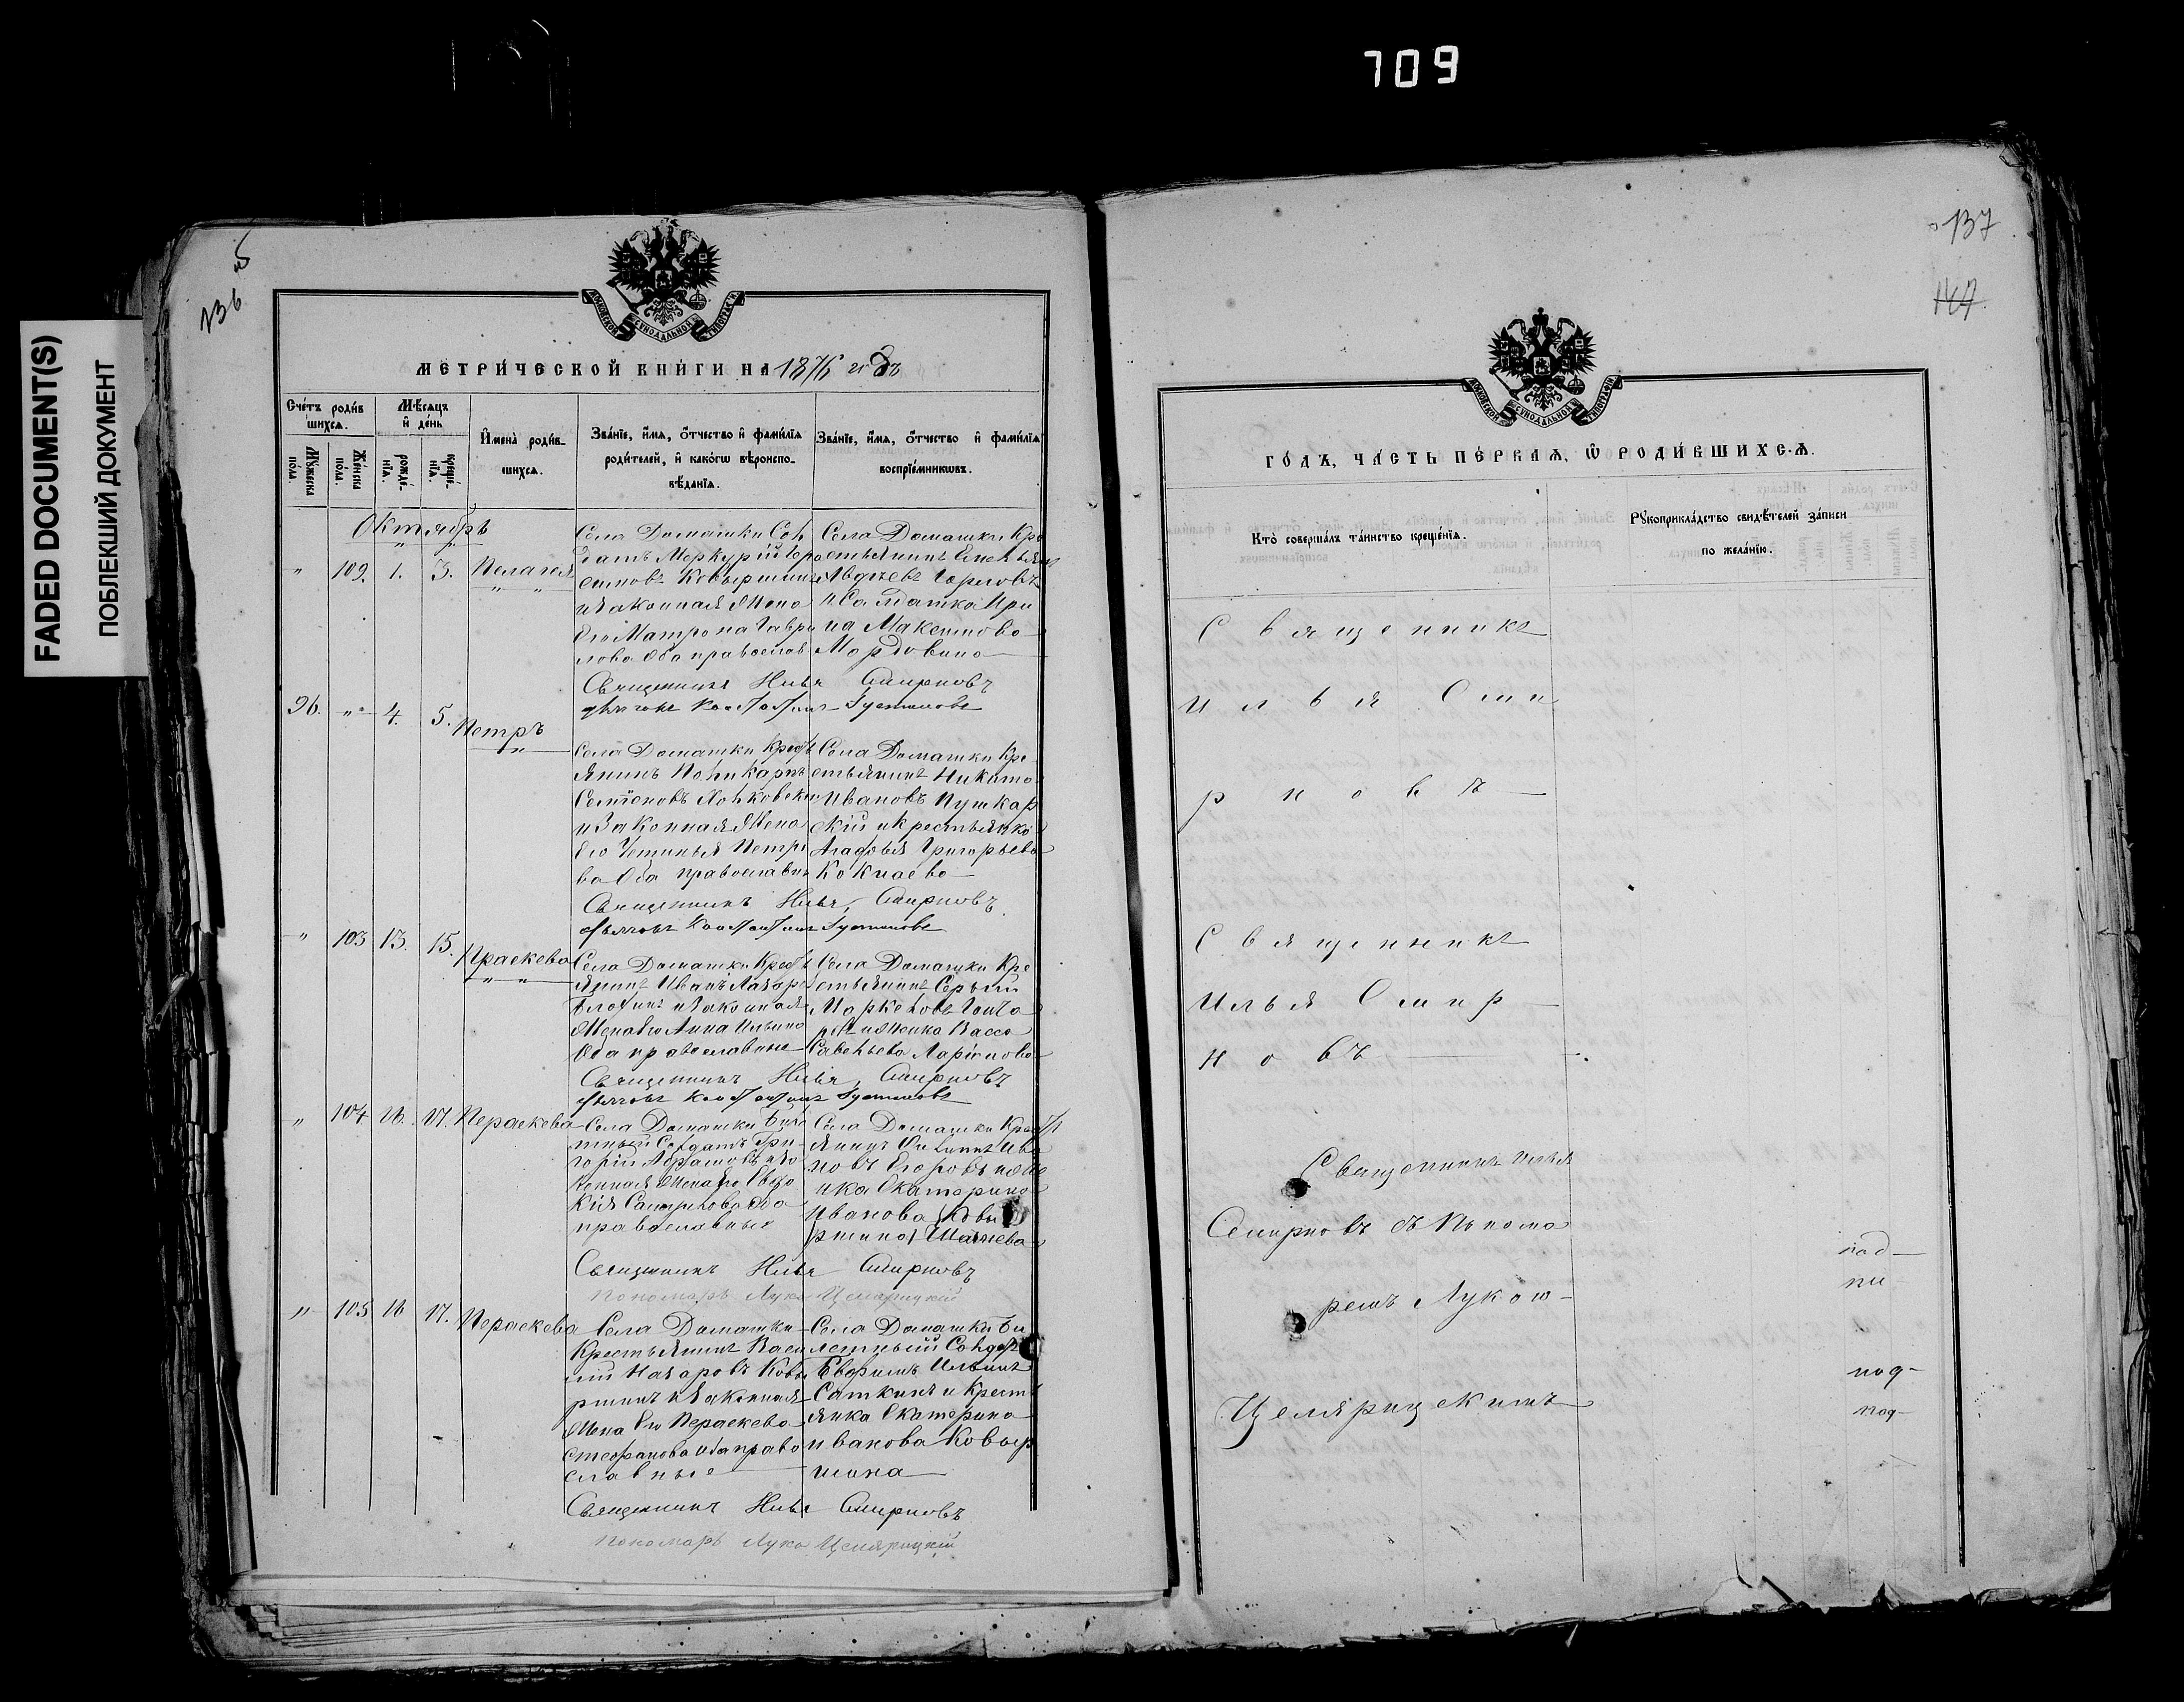 709
FADED DOCUMENT(S)
ПОБЛЕКШИЙ ДОКУМЕНТ
136
МОСКОВСКОЙ СѴНОДАЛЬНОЙ ТИПОГРАФІИ
МЕТРИ́ЧЕСКОЙ КНИ́ГИ НА 1876 г
Сче́тъ роди́в
шихсѧ.
Мꙋ́жеска
по́ла.
Же́нска
по́ла.
Мѣ́сѧцъ
и҆ де́нь
рожде́-
нїѧ.
креще́-
нїѧ.
И҆мена̀ роди́в-
шихсѧ.
Зва́нїе, и҆́мѧ, ѻ҆́тчество и҆ фами́лїѧ
роди́телей, и҆ како́гѡ вѣроиспо-
вѣ́данїѧ.
Зва́нїе, и҆́мѧ, ѻ҆́тчество и҆ фами́лїѧ
воспрїе́мникѡвъ.
Октябрь
" 102. 1. 3. Пелагея
Села Домашки Сол
датъ Меркурій Гера
симовъ Ковыршинъ
и Законная Жена
Его Матрона Гаври
лова Оба православ
Села Домашки Кре
стьянинъ Емельян
Авдѣевъ Гореловъ
и Салдатка Ири
на Максимова
Мордовина
Священникъ Илья Смирновъ
Дьяконъ Константинъ
96. " 4. 5. Петръ
Села Домашки Крест
янинъ Поликарпъ
Семеновъ
и Законная Жена
Его Устинья Петро
ва Оба православн
Села Домашки Кре
стьянинъ Никита
Ивановъ Пушкар
скій и крестьянка
Агафья Григорьева
Кокнаева
Священникъ Илья Смирновъ
Дьяконъ Константинъ
" 103 13. 15. Праскева
Села Домашки Крест
янинъ Иванъ Лазаре
и Законная
Жена Его Анна Ильина
Оба православные
Села Домашки Кре
стьянинъ Сергѣй
Маркеловъ Гонча
ровъ и Женка Васса
Савельева Ларіонова
Священникъ Илья Смирновъ
Дьяконъ Константинъ
" 104 16. 17. Пераскева
Села Домашки Биле
тный Солдатъ Гри
горій Абрамовъ и За
конная Жена Его Евдо
кія Самуилова Оба
православные
Села Домашки Крест
янинъ Филиппъ Ива
новъ Егоровъ и Же
нка Екатерина
Иванова Ковы
ршина
Священникъ Илья Смирновъ
Пономарь Лука Целярицкій
" 105 16 17. Пераскева
Села Домашки
Крестьянинъ Васи
лій Назаровъ Ковы
ршинъ и Законная
Жена Его Пераскева
Стефанова Оба право
славные
Села Домашки Би
летный Солдат
Евфимъ Ильинъ
Саткинъ и Крестъ
янка Екатерина
Иванова Ковыр
шина
Священникъ Илья Смирновъ
Пономарь Лука Целярицкій
137
147
МОСКОВСКОЙ СѴНОДАЛЬНОЙ ТИПОГРАФІИ
ГО́ДЪ, ЧА́СТЬ ПЕ́РВАѦ, Ѡ҆ РОДИ́ВШИХСѦ.
Кто̀ соверша́лъ та́инство креще́нїѧ.
Рꙋкоприкла́дство свидѣ́телей за́писи
по жела́нїю.
Священникъ
Илья Сми
рновъ
Священникъ
Илья Смир
новъ
Священникъ Илья
Смирновъ съ Понома
ремъ Лукою
Целярицкимъ